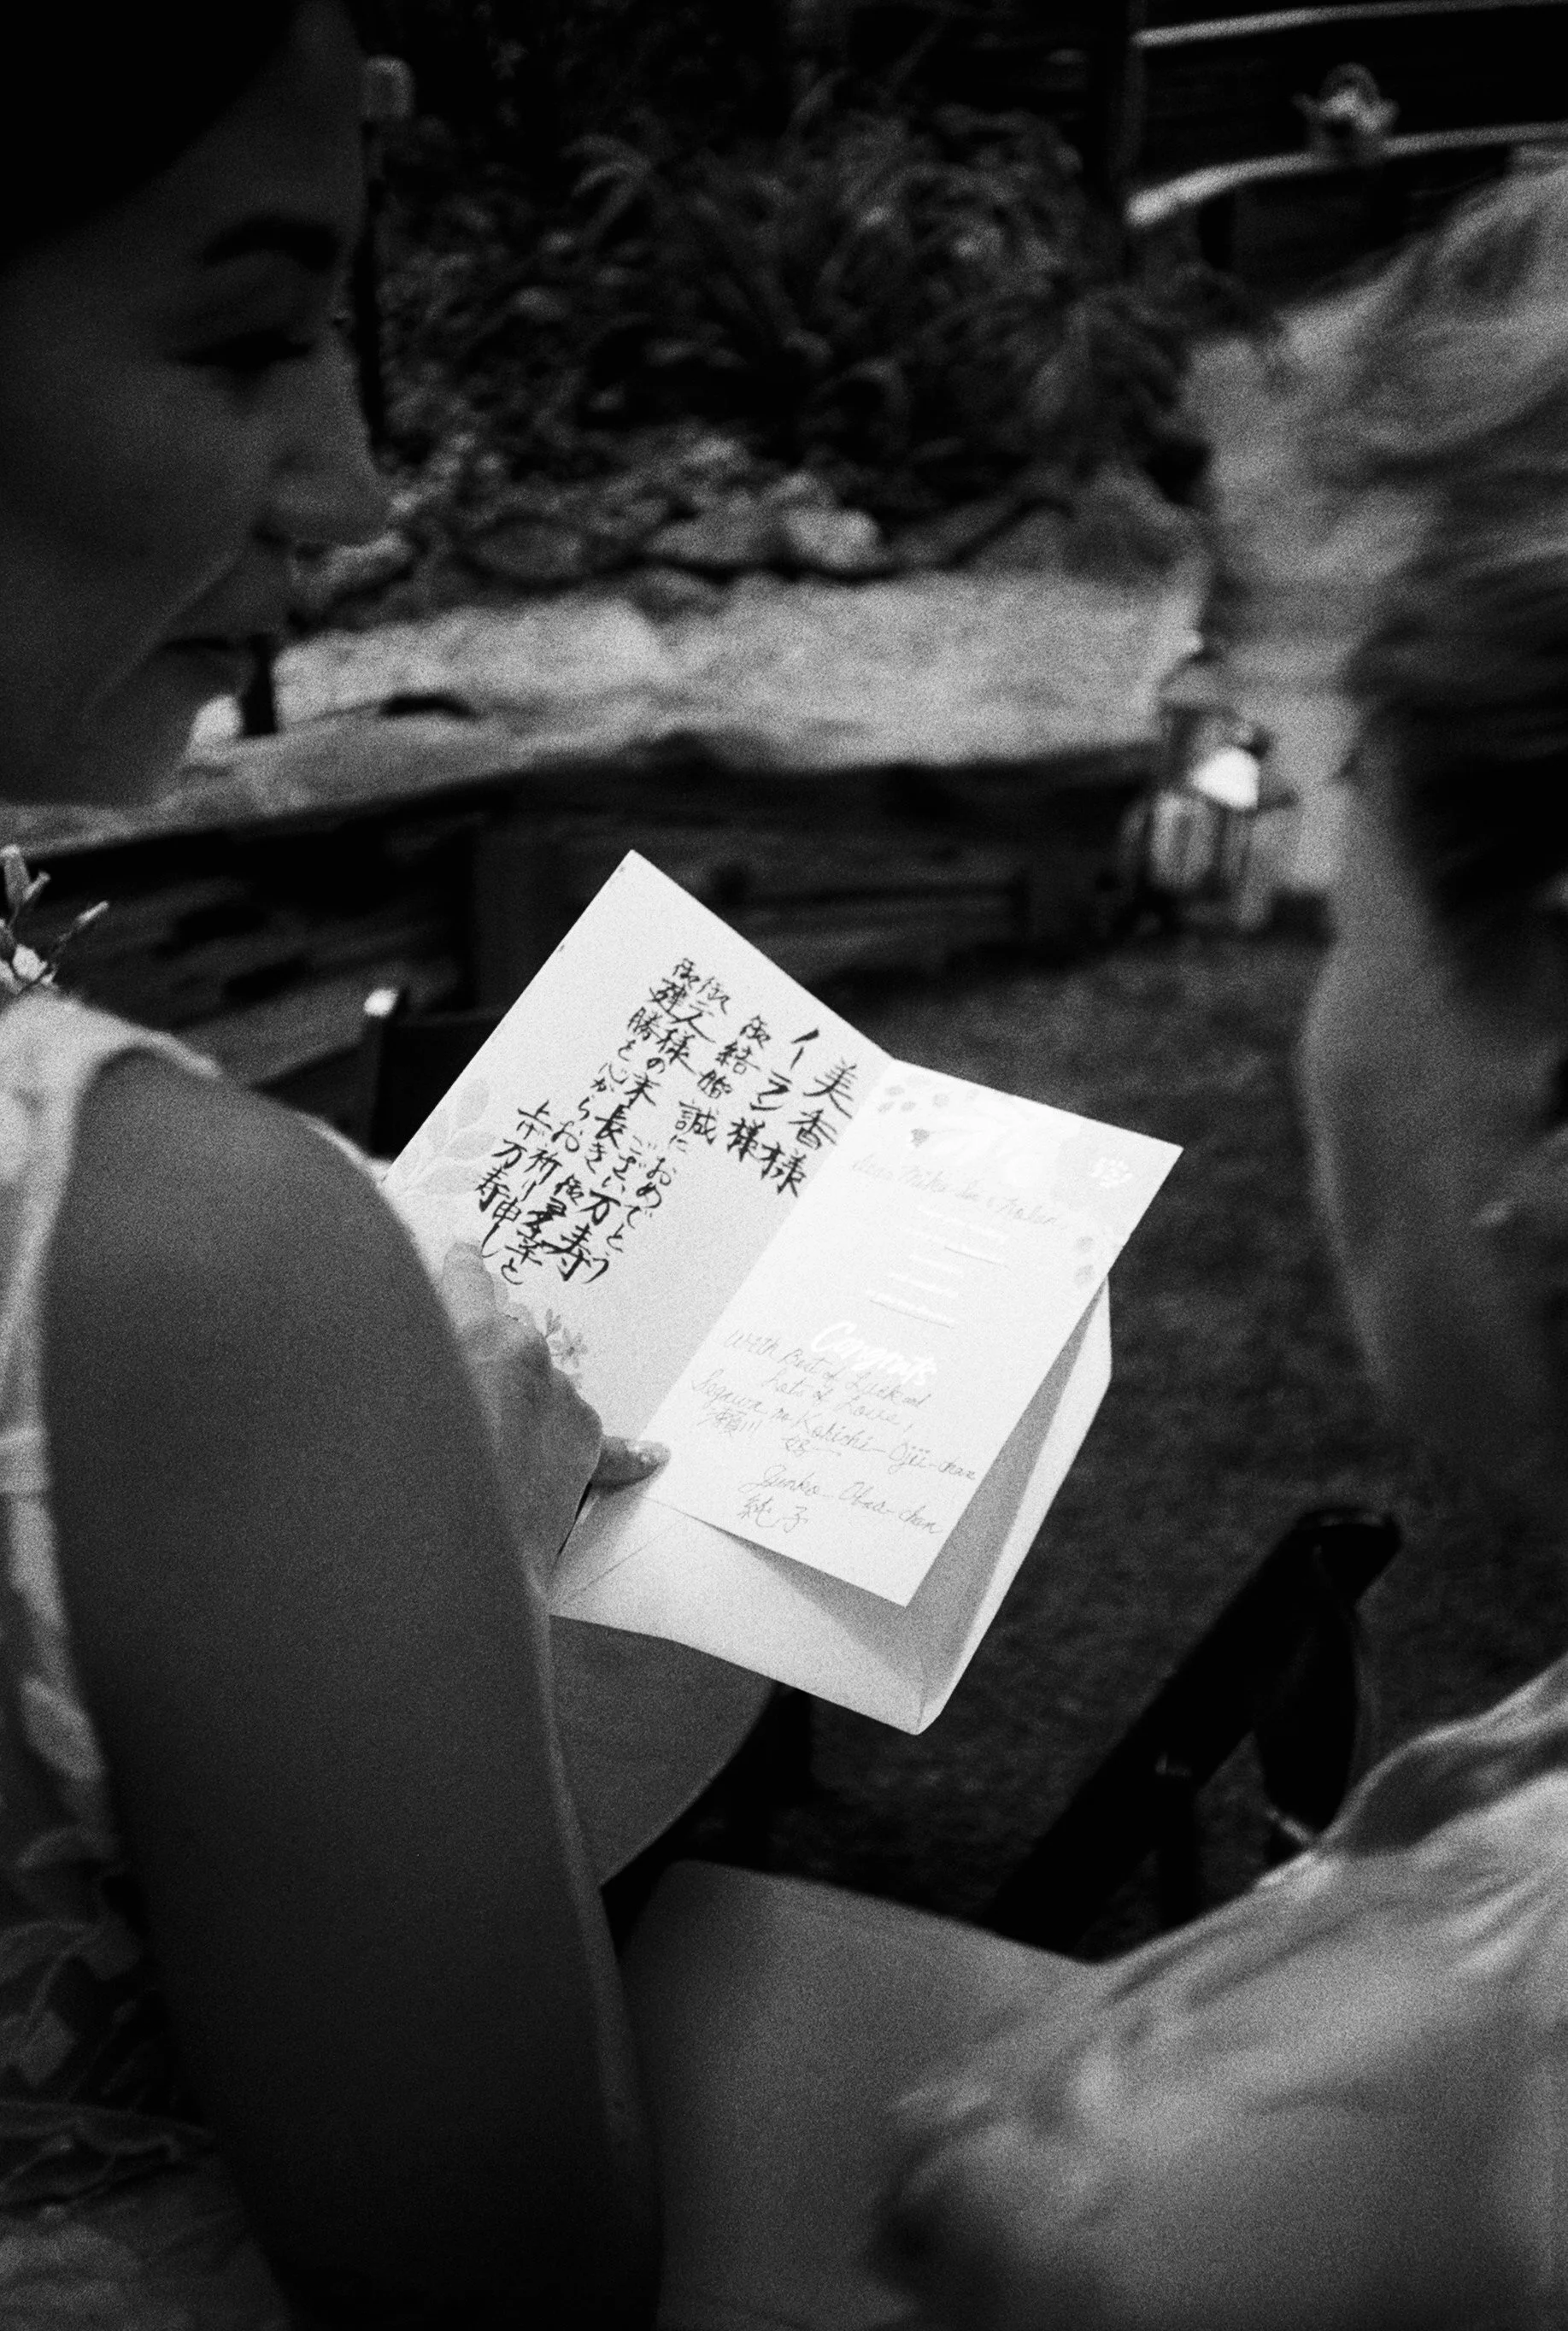 美香様
イラン様
御結婚 誠に おめでとう
ござい万寿
御二人様の末長き御多幸と
御健勝と心からお祈り申し
上げ万寿
Dear Mika San &
Congrats
With Best of Luck and
Lots of Love,
Segawa no Kohichi Ojii-chan
瀬川
Junko Obaa-chan
純子